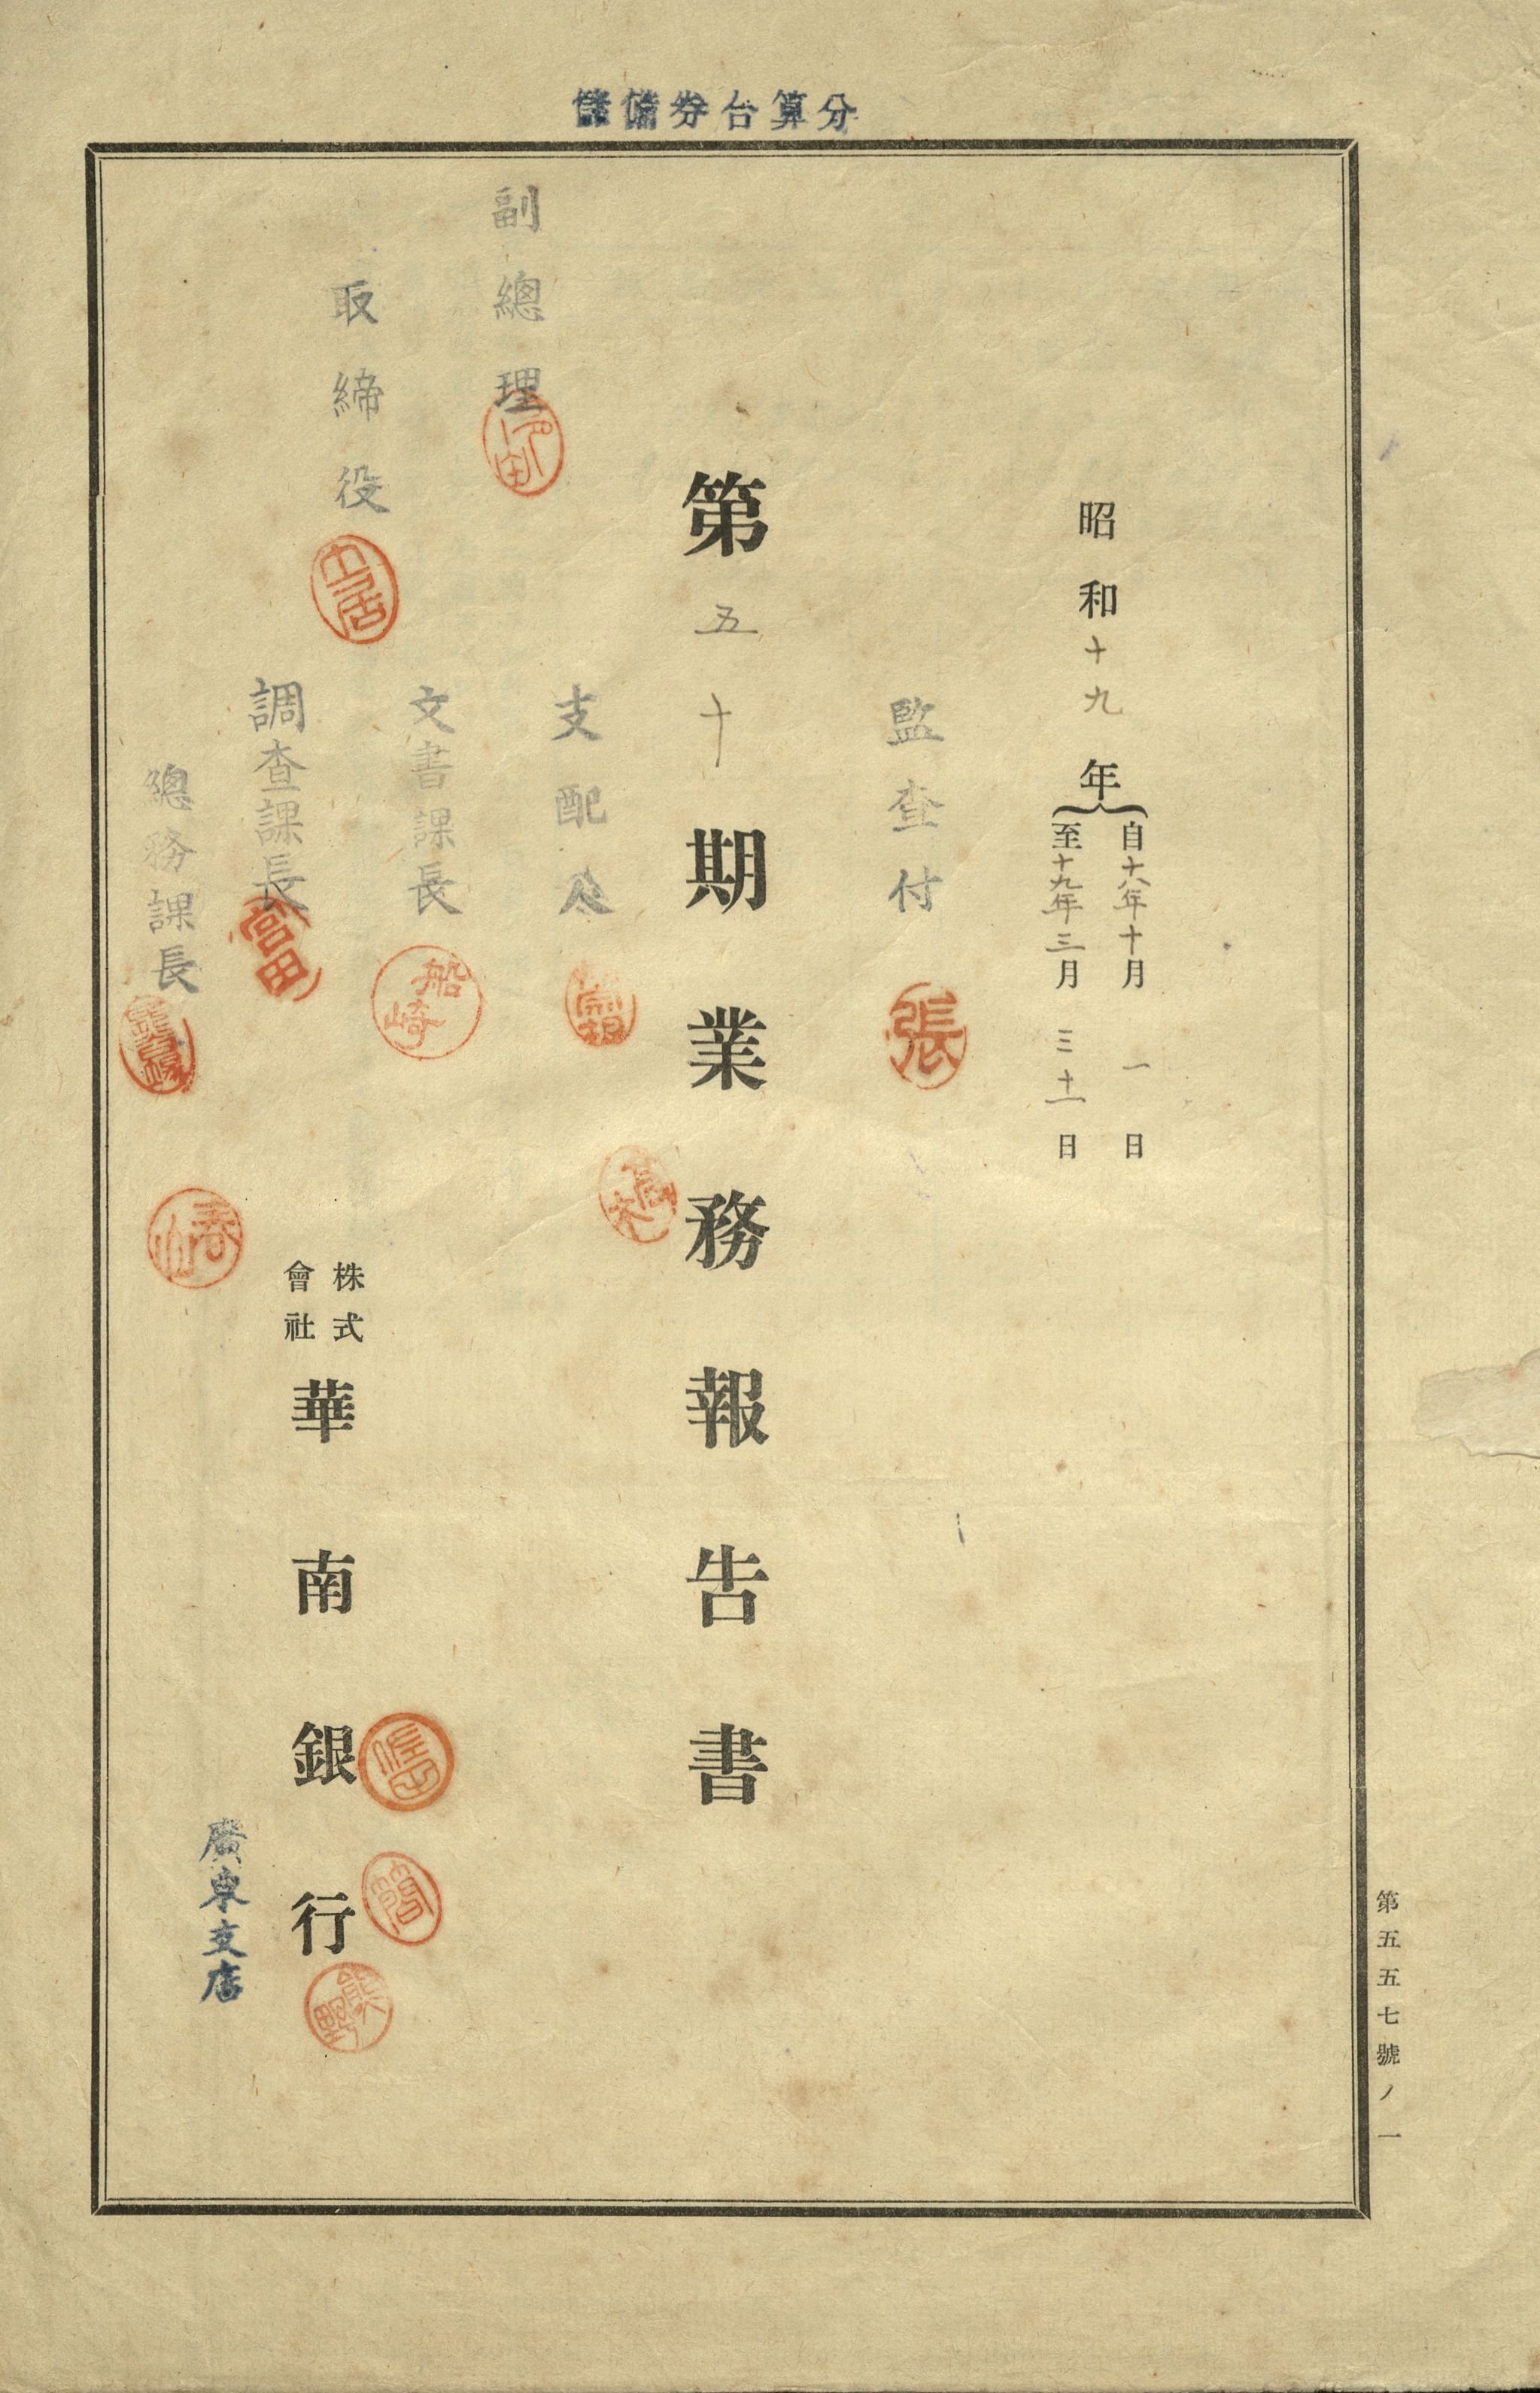 分算台券備儲
昭和十九年
自十八年十月一日
至十九年三月三十一日
監査付
張
第五十期業務報告書
支配人
副總理
文書課長
船崎
取締役
土居
調査課長
富田
總務課長
春山
株式
會社
華南銀行
熊野
廣東支店
第五五七號ノ一